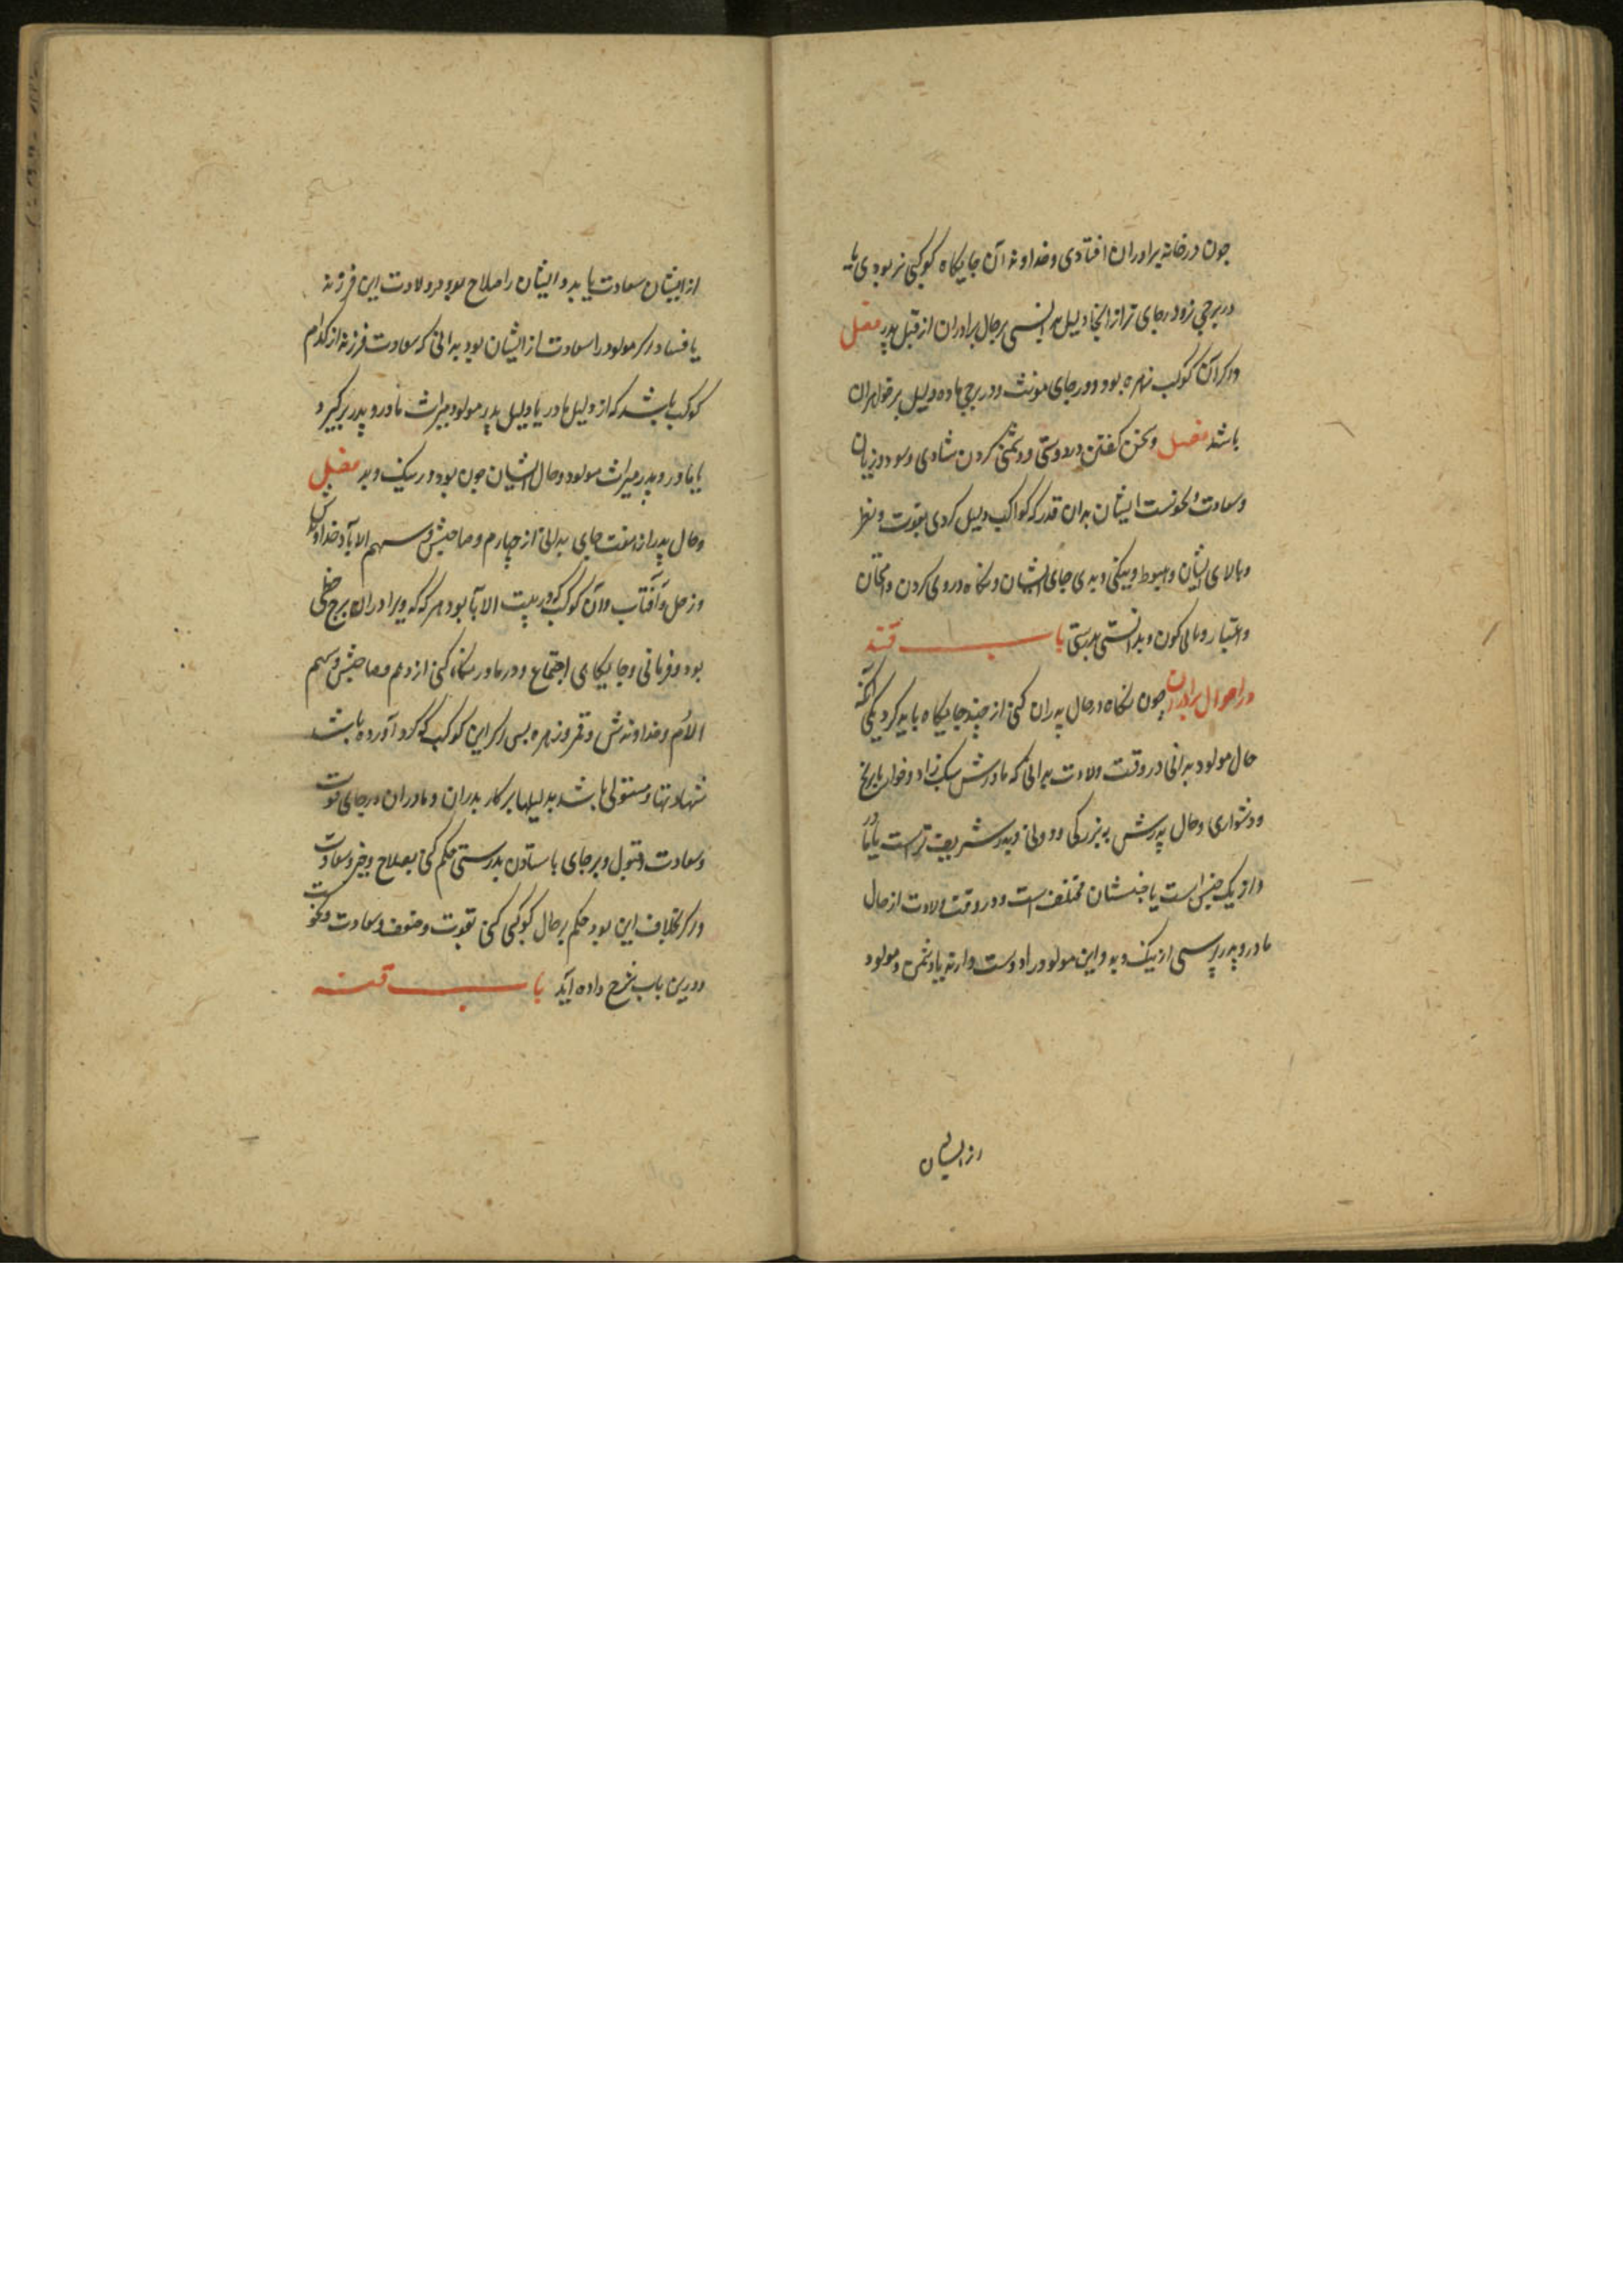 چون در خانه برادران افتادی و خداوند آن جایکاه کوکبی نر بودی یا
در برجی نر و در جای نر از انجا دلیل بر حال برادران از قبل پدر فصل
و اکر آن کوکب زهره بود و در جای مونث و در برجی ماده دلیل بر خواهران
باشد فصل و سخن کفتن در دوستی و دشمنی کردن شادی و سود و زیان
و سعادت و نحوست ایشان بدان قدر که کواکب دلیل کردی بقوت و نظر
و بالای ایشان و هبوط و نیکی و بدی جای ایشان و نکاه در وی کردن و امتحان
و اعتبار و مالی کون و بدانستی باب
در احوال برادران چون نکاه در حال پدران کنی از چند جایکاه باید کرد یکی آنکه
حال مولود بدانی در وقت ولادت بدانی که مادرش سبک زاد و خوار یا برنج
و دشواری و حال پدرش به بزرکی و دونی و پدر شریف تر است یا مادر
و از یک جنس است یا جنسشان مختلف است و در وقت ولادت از حال
مادر و پدر پرسی از نیک و بد و این مولود را دوست دارند یا دشمن و مولود
از ایشان
از ایشان سعادت یابد و ایشان را صلاح بود در ولادت این فرزند
یا فساد و اکر مولود را سعادت از ایشان بود بدانی که سعادت فرزند از کدام
کوکب باشد که از دلیل مادر یا دلیل پدر مولود میراث مادر و پدر برکیرد
یا مادر و پدر میراث مولود و حال ایشان چون بود در نیک و بد فصل
و حال پدر از هفت جای بدانی از چهارم و صاحبش و سهم الابا و خداوندش
و زحل و آفتاب و آن کوکب که در بیت الابا بود هر که که ویرا در آن برج حظی
بود و فرمانی و جایکاه اجتماع و در مادر نکاه کنی از دهم و صاحبش و سهم
الام و خداوندش و قمر و زهره پس اکر این کوکب که کرد آورده باشد
شهادتها و مستولی باشد بدلیلها بر کار پدران و مادران در جای قوت
و سعادت و قبول و بر جای باستادن بدرستی حکم کن بصلاح و خیر و سعادت
و اکر بخلاف این بود حکم بر حال کوکبی کنی بقوت و ضعف و سعادت و نحوست
و درین باب شرح داده آید باب